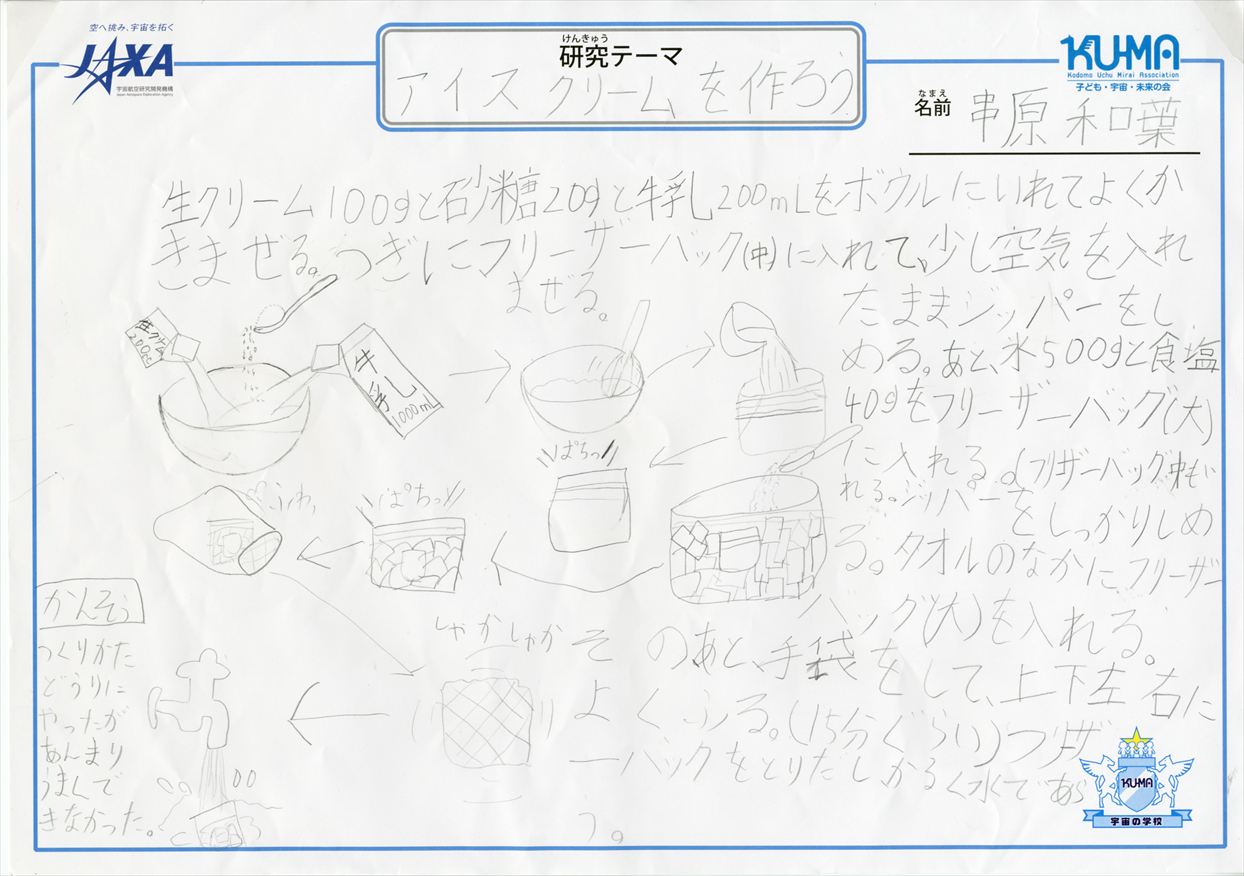 空へ挑み、宇宙を拓く
JAXA
宇宙航空研究開発機構
Japan Aerospace Exploration Agency
けんきゅう
研究テーマ
アイスクリームを作ろう
KU-MA
Kodomo Uchu Mirai Association
子ども・宇宙・未来の会
なまえ
名前 串原 和葉
生クリーム100gと砂糖20gと牛乳200mLをボウルにいれてよくか
きまぜる。つぎにフリーザーバック(中)に入れて、少し空気を入れ
たままジッパーをし
める。あと、氷500gと食塩
40gをフリーザーバッグ(大)
に入れる。(フリザーバッグ中もい
れる。ジッパーをしっかりしめ
る。タオルのなかにフリーザー
バッグ(大)を入れる。
そのあと、手袋をして、上下左右に
よくふる。(15分ぐらい)フリザ
ーバックをとりだしかるく水であら
う。
まぜる。
生クリーム
200mL
牛乳
1000mL
ぱちっ
ぱちっ
ふわ
しゃかしゃか
かんそう
つくりかた
どうりに
やったが
あんまり
うまくで
きなかった。
KU-MA
宇宙の学校